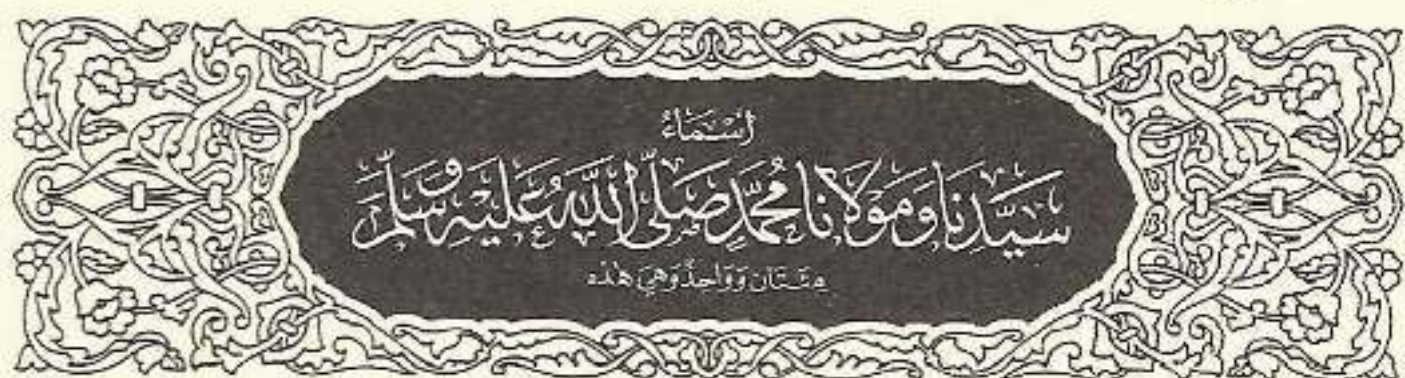 اسْمَاءُ
سَيِّدِنَا وَمَوْلَانَا مُحَمَّدٍ صَلَّى اللَّهُ عَلَيْهِ وَسَلَّمَ
مِئَتَان وَوَاحِدٌ وَهِيَ هٰذه